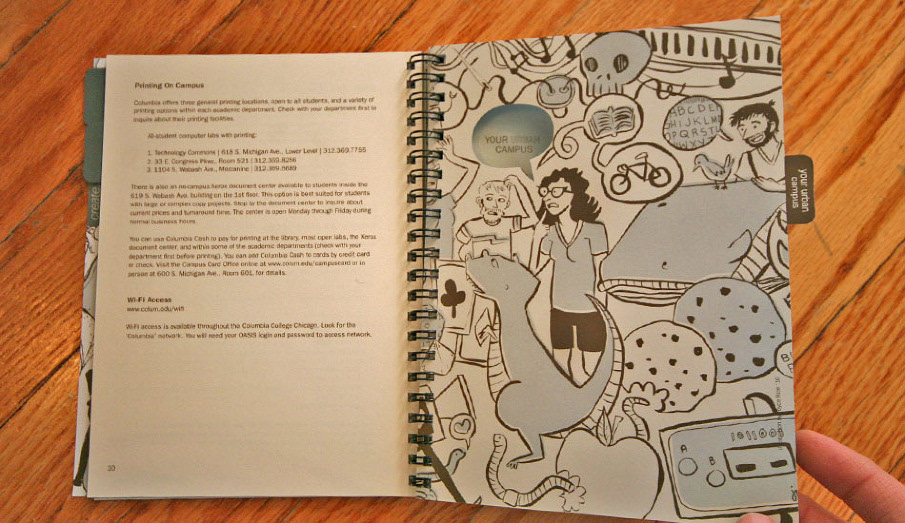 Printing On Campus
Columbia offers three general printing locations, open to all students, and a variety of
printing options within each academic department. Check with your department first to
inquire about their printing facilities.
All-student computer labs with printing:
1. Technology Commons | 618 S. Michigan Ave., Lower Level | 312.369.7756
2. 33 E. Congress Pkwy., Room 521 | 312.369.8256
3. 1104 S. Wabash Ave., Mezzanine | 312.369.8689
There is also an on-campus Xerox document center available to students inside the
619 S. Wabash Ave. building on the 1st floor. This option is best suited for students
with large or complex copy projects. Stop by the document center to inquire about
current prices and turnaround time. The center is open Monday through Friday during
normal business hours.
You can use Columbia Cash to pay for printing at the library, most open labs, the Xerox
document center, and within some of the academic departments (check with your
department first before printing). You can add Columbia Cash to cards by credit card
or check. Visit the Campus Card Office online at www.colum.edu/campuscard or in
person at 600 S. Michigan Ave., Room 601, for details.
Wi-Fi Access
www.colum.edu/wifi
Wi-Fi access is available throughout the Columbia College Chicago. Look for the
"Columbia" network. You will need your OASIS login and password to access network.
30
create
YOUR URBAN
CAMPUS
ABCDEF
HIJKLM
OPQRST
WXYZ
your urban
campus
A
B